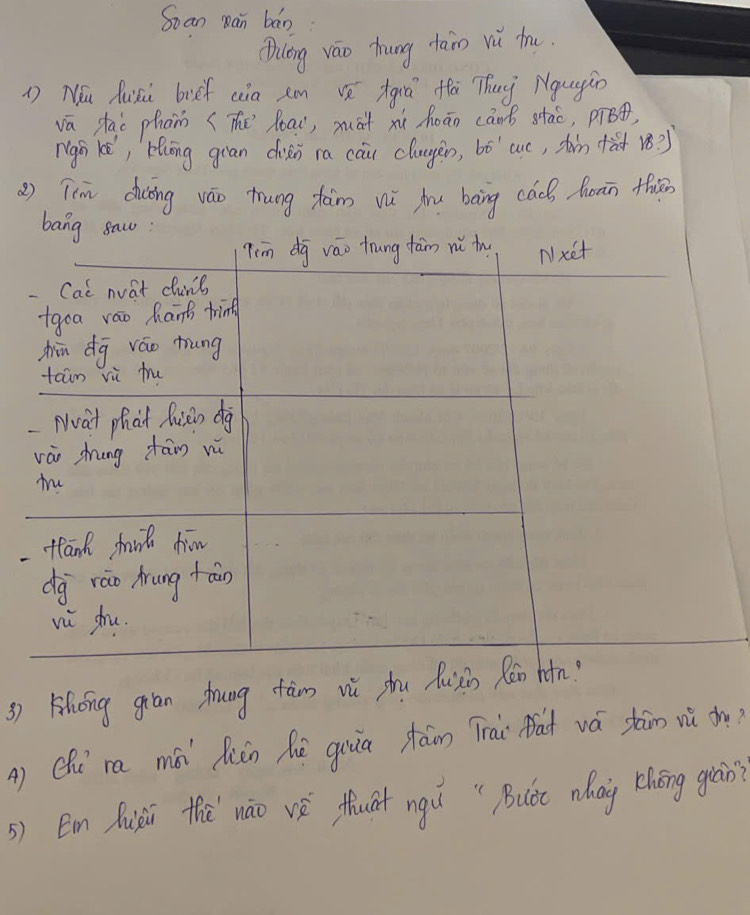 Soạn văn bản :
Đường vào trung tâm vũ trụ.
1) Nêu hiểu biết của em về tgiả Hà Thuỷ Nguyên
và tác phẩm < Thể loại, xuất xứ hoàn cảnh stác, PTBĐ,
Ngôi kể, không gian diễn ra câu chuyện, bố cục, tóm tắt VB?)
2) Tìm đường vào trung tâm vũ trụ bằng cách hoàn thiện
bảng sau :
Tìm đg vào trung tâm vũ trụ
Nxét
- Các nvật chính
tgoa vào hành trình
tìm đg vào trung
tâm vũ trụ
- Nvật phát hiện đg
vào trung tâm vũ
trụ
- Hành trình tìm
đg vào trung tâm
vũ trụ.
3) Không gian trung tâm vũ trụ hiện lên ntn?
4) Chỉ ra mối liên hệ giữa tâm Trái Đất và tâm vũ trụ?
5) Em hiểu thế nào về thuật ngữ "Bước nhảy không gian"?